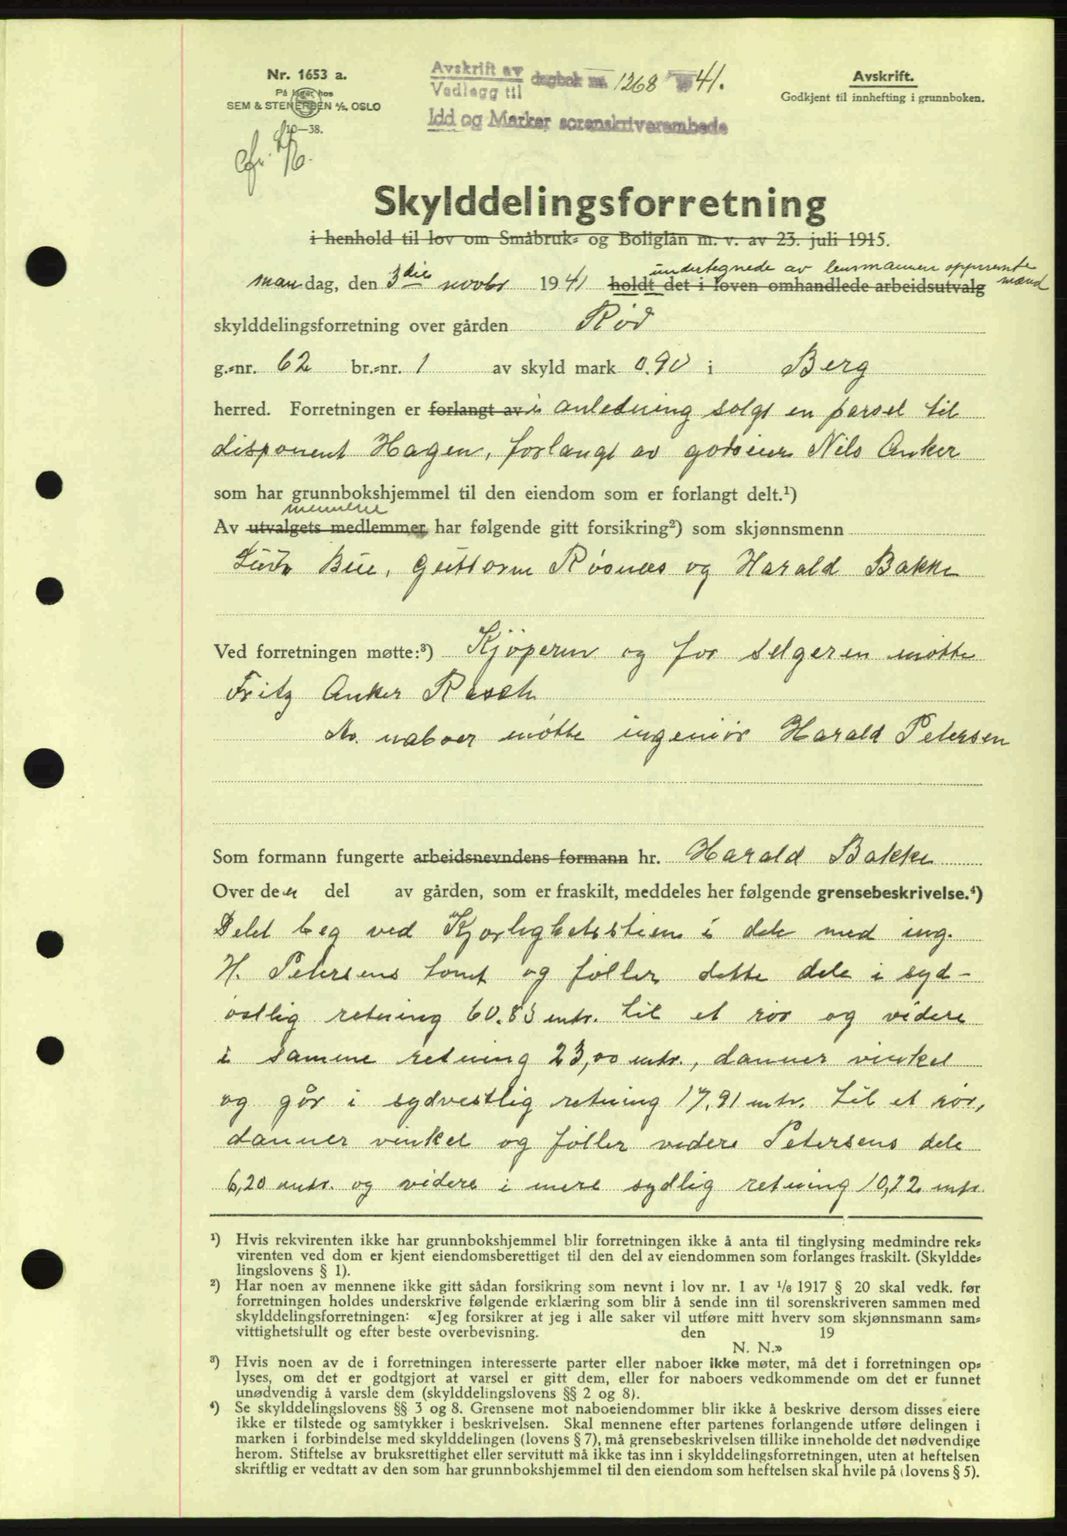 Nr. 1653 a.
På lager hos
SEM & STENERSEN A/S, OSLO
10—38.
Avskrift av
Vedlegg til
dagbok nr. 1268 19 41.
Idd og Marker sorenskriverembede
Avskrift.
Godkjent til innhefting i grunnboken.
Skylddelingsforretning
i henhold til lov om Småbruk- og Boliglån m. v. av 23. juli 1915.
undertegnede av lensmannen oppnevnte
mandag, den 3die novbr 1941 holdt det i loven omhandlede arbeidsutvalg mænd
skylddelingsforretning over gården Rød
g.-nr. 62 br.-nr. 1 av skyld mark 0.90 i Berg
herred. Forretningen er forlangt av i anledning solgt en parsel til
disponent Hagen, forlangt av godseier Nils Anker
som har grunnbokshjemmel til den eiendom som er forlangt delt.¹)
mennene
Av utvalgets medlemmer har følgende gitt forsikring²) som skjønnsmenn
Bue, Guttorm Røsnæs og Harald Bakke
Ved forretningen møtte:³) Kjøperen og for selgeren møtte
Fritz Anker Rasch
Av naboer møtte ingeniør Harald Petersen
Som formann fungerte arbeidsnevndens formann hr. Harald Bakke
Over den del av gården, som er fraskilt, meddeles her følgende grensebeskrivelse.⁴)
Delet beg ved Kjærlighetsstien i dele med ing.
H. Petersens tomt og føller dette dele i syd-
østlig retning 60.83 mtr. til et rør og videre
i samme retning 23,00 mtr., danner vinkel
og går i sydvestlig retning 17.91 mtr. til et rør,
danner vinkel og føller videre Petersens dele
6,20 mtr. og videre i mere sydlig retning 10,72 mtr.
¹) Hvis rekvirenten ikke har grunnbokshjemmel blir forretningen ikke å anta til tinglysing medmindre rek-
virenten ved dom er kjent eiendomsberettiget til den del av eiendommen som forlanges fraskilt. (Skyldde-
lingslovens § 1).
²) Har noen av mennene ikke gitt sådan forsikring som nevnt i lov nr. 1 av 1/6 1917 § 20 skal vedk. før
forretningen holdes underskrive følgende erklæring som blir å sende inn til sorenskriveren sammen med
skylddelingsforretningen: «Jeg forsikrer at jeg i alle saker vil utføre mitt hverv som skjønnsmann sam-
vittighetsfullt og efter beste overbevisning. den 19
N. N.»
³) Hvis noen av de i forretningen interesserte parter eller naboer ikke møter, må det i forretningen op-
lyses, om det er godtgjort at varsel er gitt dem, eller for naboers vedkommende om det er funnet
unødvendig å varsle dem (skylddelingslovens §§ 2 og 8).
⁴) Se skylddelingslovens §§ 3 og 8. Grensene mot naboeiendommer blir ikke å beskrive dersom disses eiere
ikke er tilstede og samtykker i beskrivelsen. Skal mennene efter partenes forlangende utføre delingen i
marken i forbindelse med skylddelingen (lovens § 7), må grensebeskrivelsen tillike inneholde det nødvendige
herom. Stiftelse av bruksrettighet eller servitutt må ikke tas inn i skylddelingsforretningen, uten at heftelsen
skriftlig er vedtatt av den som har grunnbokshjemmel til den eiendom som heftelsen skal hvile på (lovens § 5).